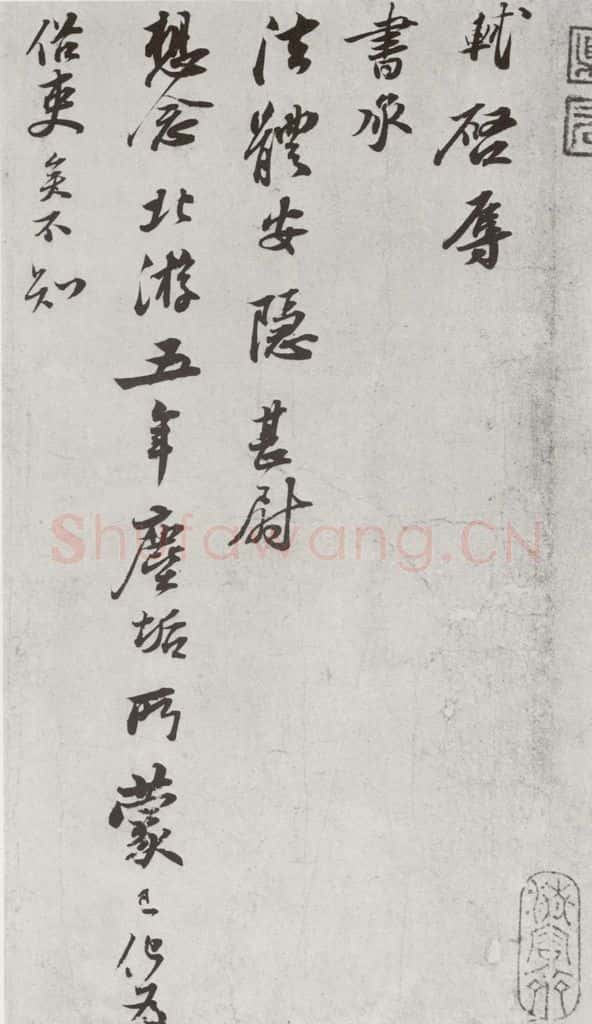 軾啓辱
書承
法體安隱甚尉
想念北游五年塵垢所蒙已化為
俗吏矣不知
Shufawang.CN